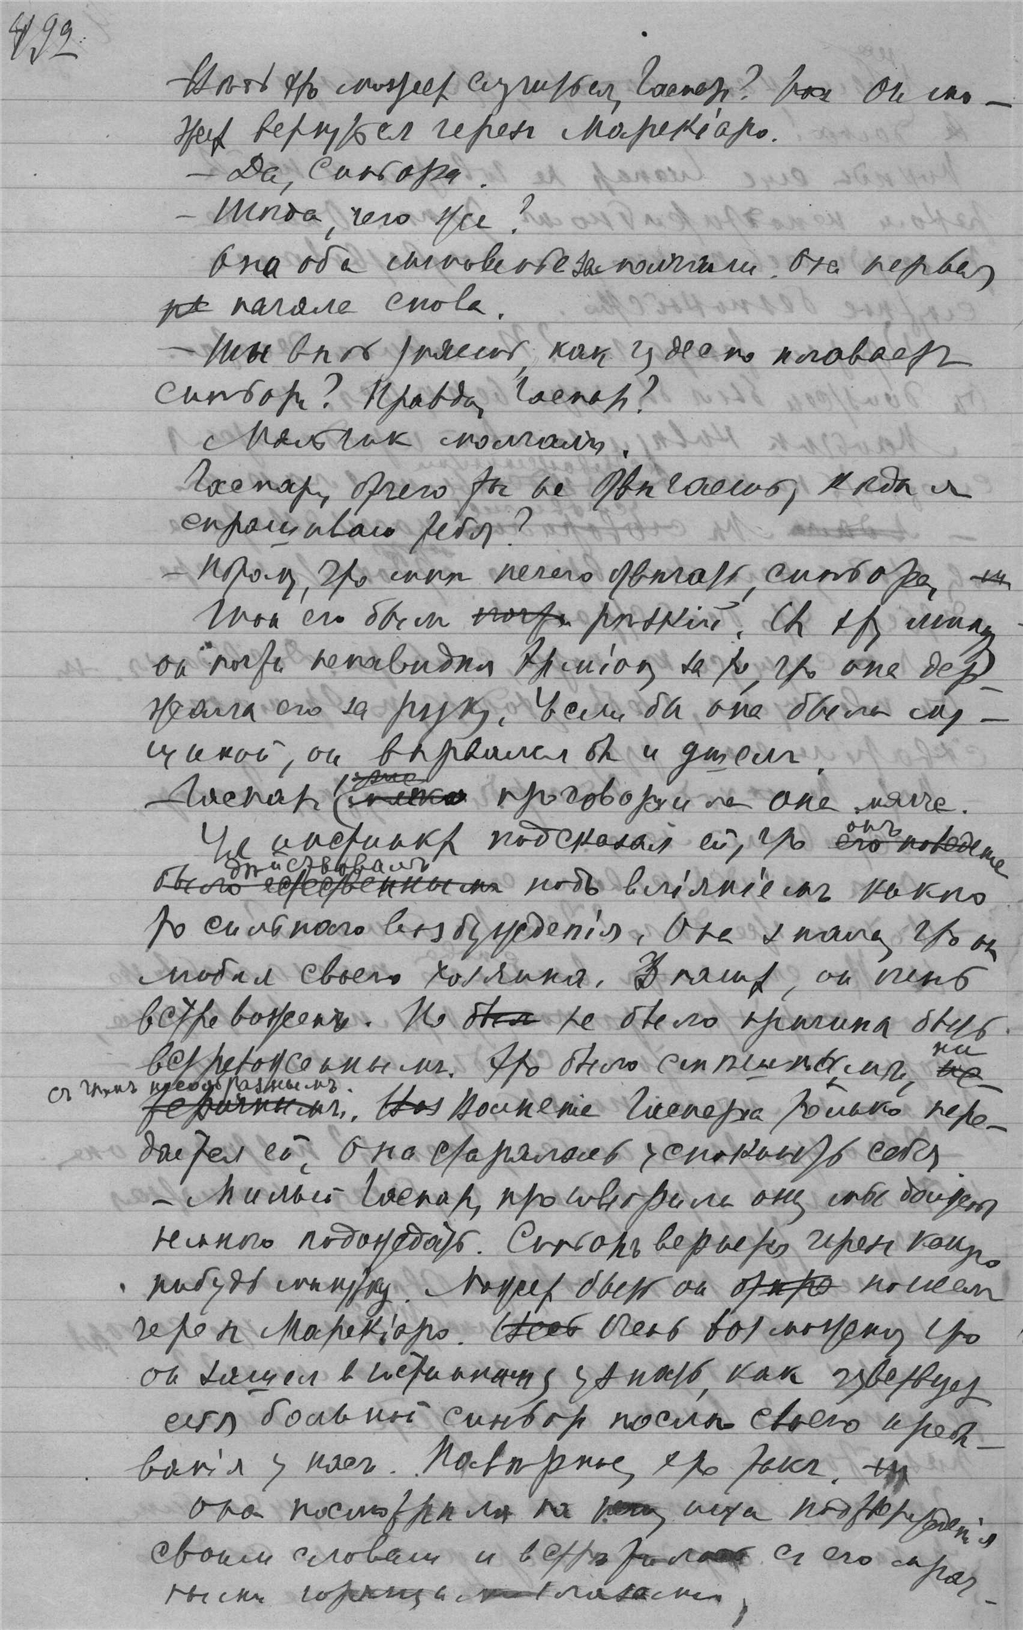 492
— что можетъ случиться, Гаспаръ? Онъ мо-
жетъ вернуться черезъ Марекіаро.
— Да, синьора.
— Тогда, чего же?
Они оба мгновеніе молчали. Она первая
начала снова.
— Ты вѣдь знаешь, какъ чудесно плаваетъ
синьоръ? Правда, Гаспаръ?
Мальчикъ молчалъ.
Гаспаръ, отчего ты не отвѣчаешь, когда я
спрашиваю тебя?
— Потому, что мнѣ нечего отвѣчать, синьора,
Тонъ его былъ рѣзкій. Въ эту минуту
он почти ненавидѣлъ Эрміону за то, что она дер-
жала его за руку. Если бы она была му-
щиной, он вырвался бы и ушелъ.
— Гаспаръ! проговорила она мягче.
Ея инстинктъ подсказалъ ей, что онъ
дѣйствовалъ подъ вліяніемъ какого
то сильнаго возбужденія. Она знала, что он
любилъ своего хозяина. Значитъ, он очень
встревоженъ. Но не было причины быть
встревоженнымъ. Это было смѣшнымъ, ни
съ чѣмъ несообразнымъ. Волненіе Гаспара только пере-
дается ей. Она старалась успокоить себя
— Милый Гаспаръ, проговорила она, мы должны
немного подождать. Синьоръ вернется черезъ какую
нибудь минуту. Можетъ быть он пошелъ
черезъ Марекіаро. Очень возможно, что
он зашелъ в гостинницу узнать, какъ чувствуетъ
себя больной синьоръ послѣ своего пребы-
ванія у насъ. Навѣрное, это такъ.
Она посмотрѣла на него ища подтвержденія
своимъ словамъ и встрѣтилась съ его мрач-
ными горящими глазами,